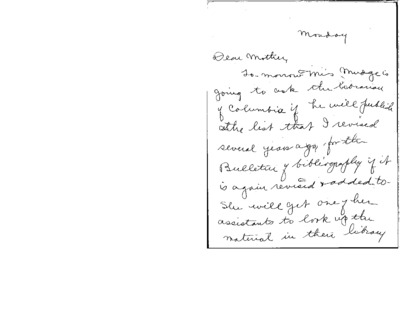 Monday
Dear Mother,
To-morrow Miss Mudge is
going to ask the librarian
of Columbia if he will publish
the list that I revised
several years ago for the
Bulletin of bibliography if it
is again revised & added to.
She will get one of her
assistants to look up the
material in their library